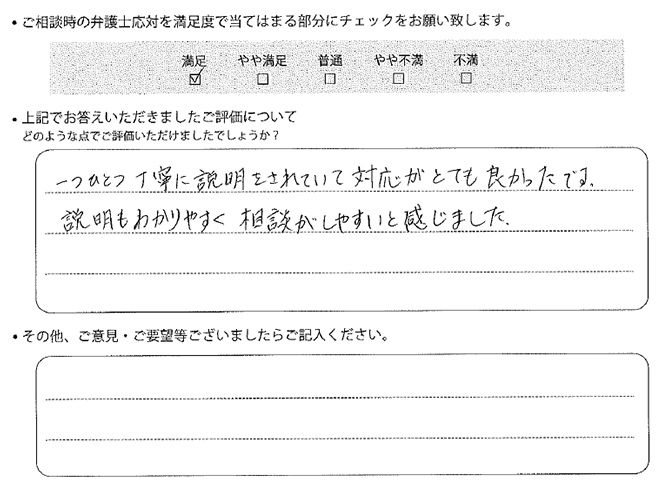 • ご相談時の弁護士応対を満足度で当てはまる部分にチェックをお願い致します。
満足 やや満足 普通 やや不満 不満
☑ □ □ □ □
• 上記でお答えいただきましたご評価について
どのような点でご評価いただけましたでしょうか?
一つひとつ丁寧に説明をされていて対応がとても良かったです。
説明もわかりやすく相談がしやすいと感じました。
• その他、ご意見・ご要望等ございましたらご記入ください。